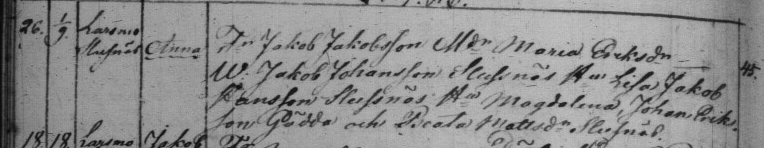 26. 1/9. Larsmo Anna Fr Jakob Jakobsson Mdr Maria Eriksdr
Slussnäs W. Jakob Johansson Slussnäs Hu Lisa Jakob 45.
Hansson Slussnäs Hu Magdalena Johan Erik-
son Gädda och Beata Mattsdr Slussnäs.
18. 18. Larsmo Jakob Fr